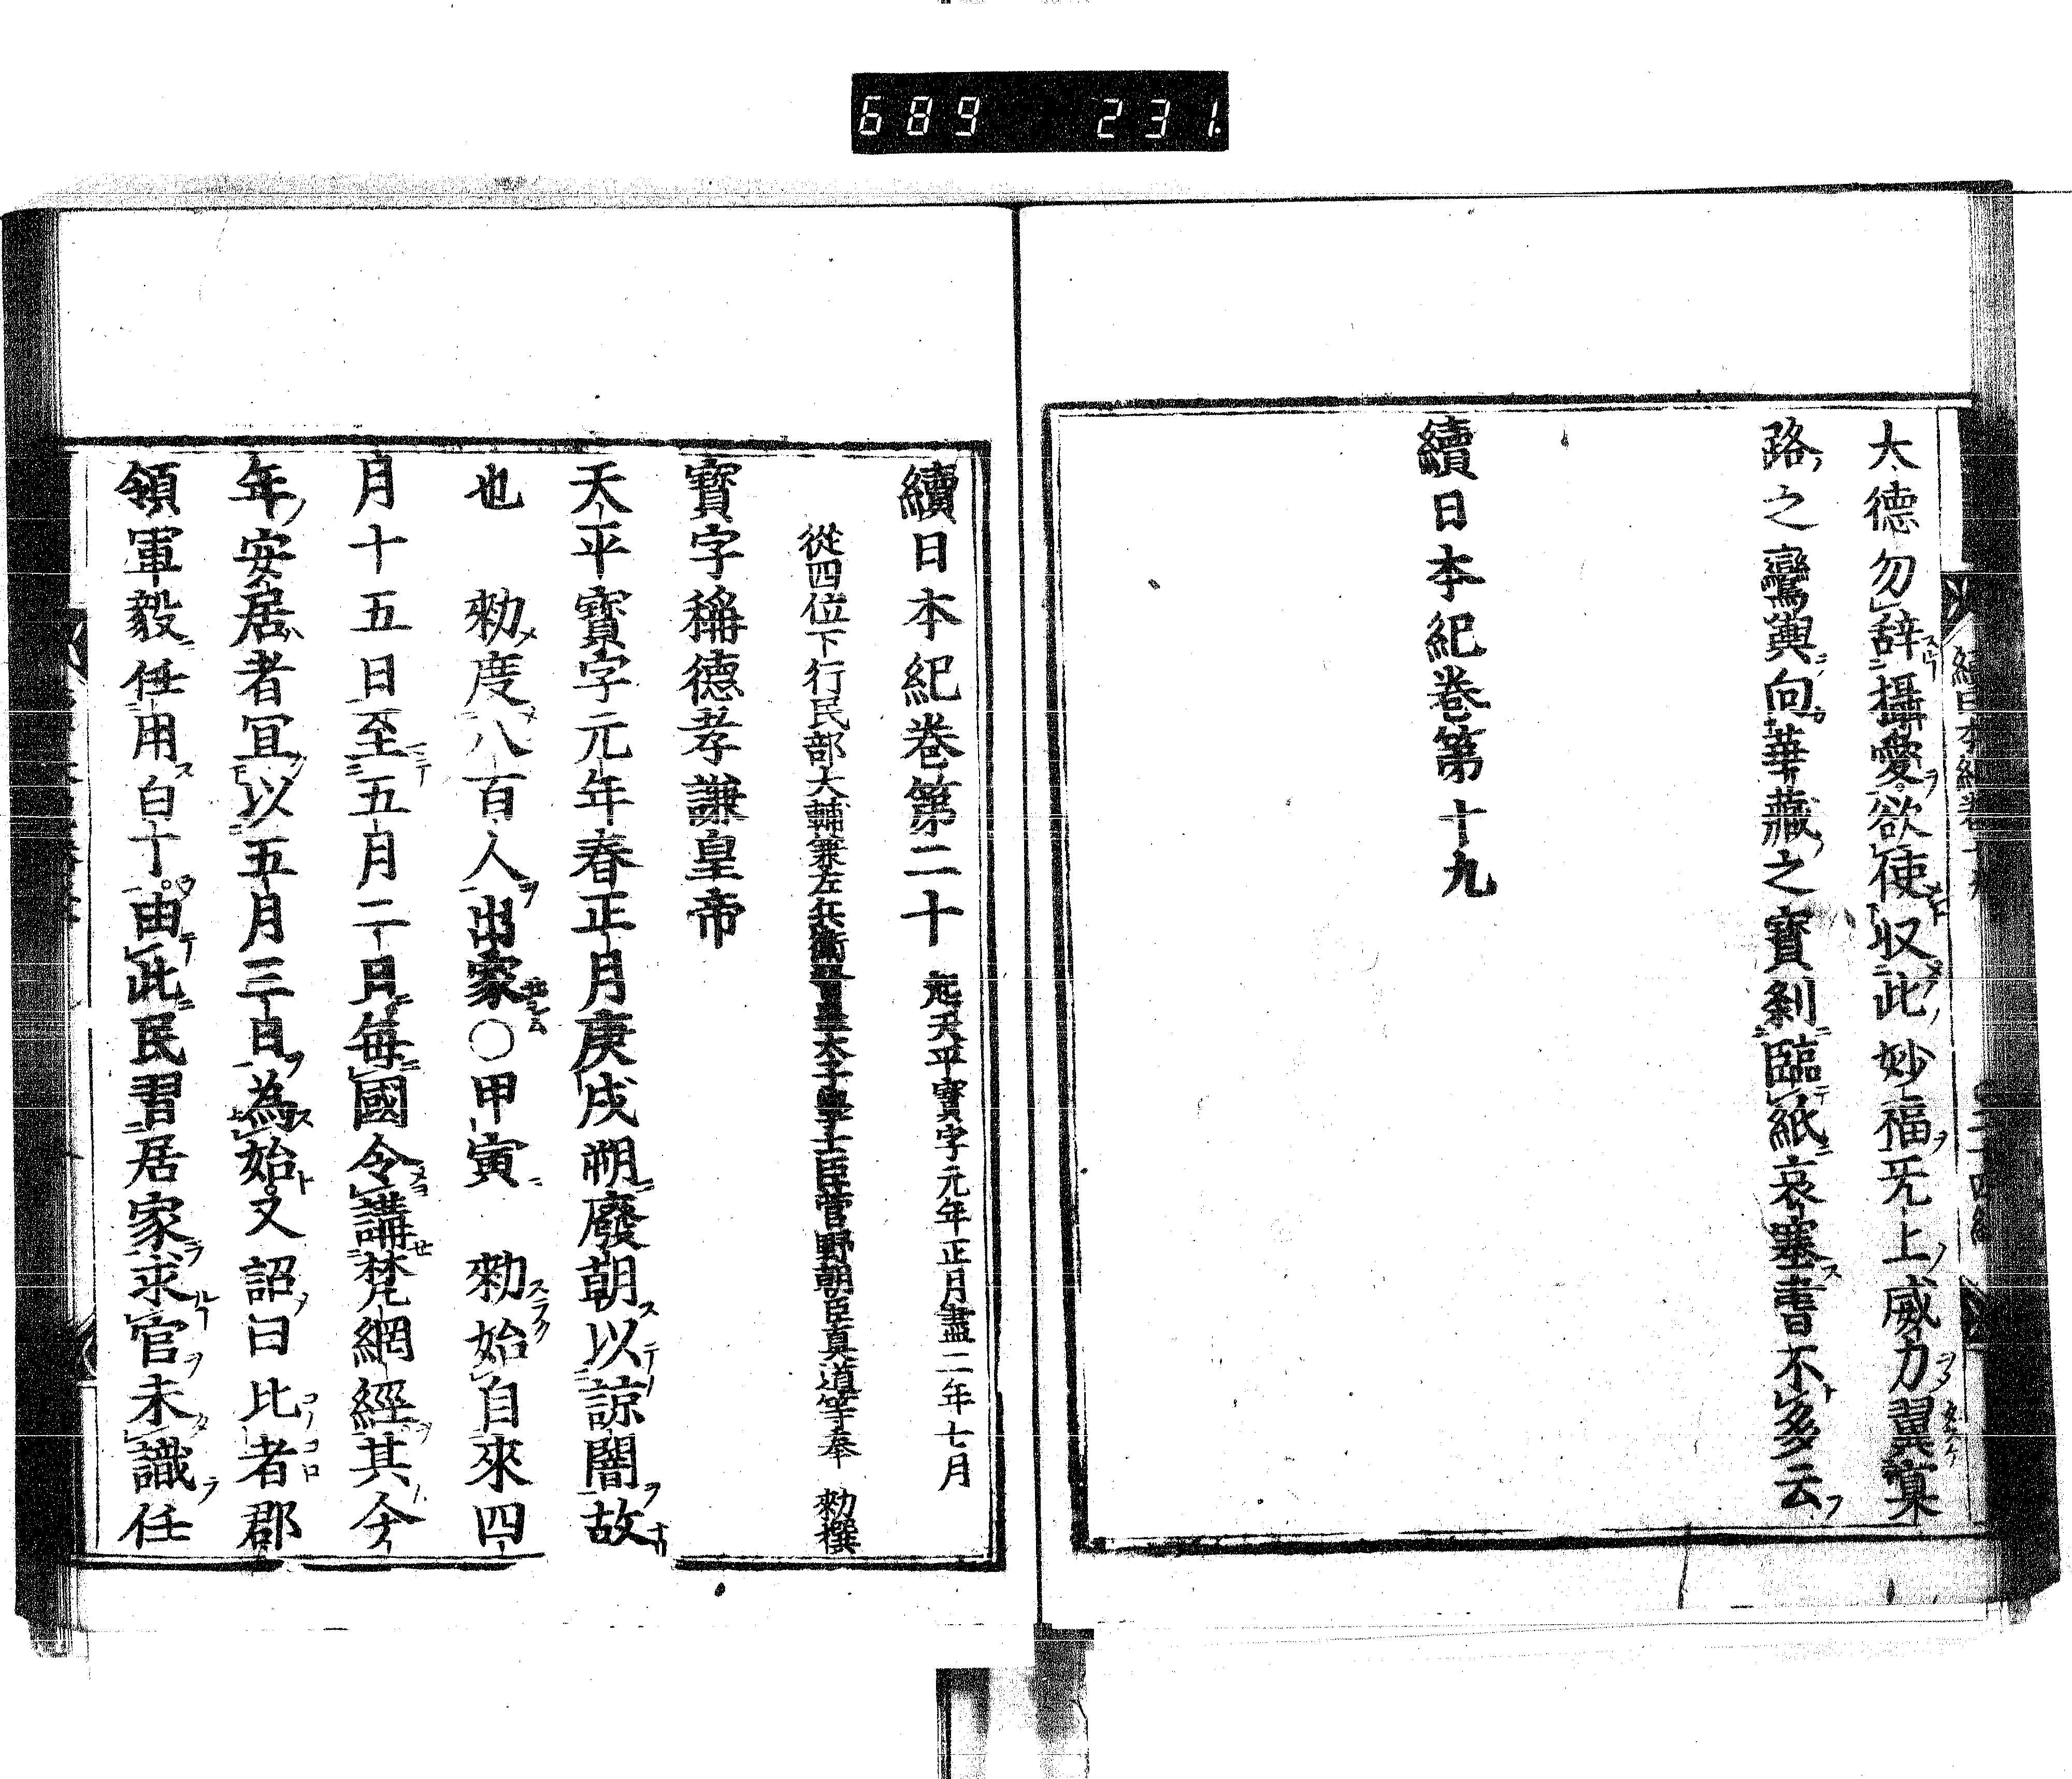 689 231
大德勿辞攝愛欲使収此妙福无上威力翼寞
路之鸞輿向華藏之寶刹臨紙哀塞書不多云
續日本紀卷第十九
續日本紀卷第二十 起天平寶字元年正月盡二年七月
從四位下行民部大輔兼左兵衛督皇太子學士臣菅野朝臣真道等奉 勅撰
寶字稱德孝謙皇帝
天平寶字元年春正月庚戌朔廢朝以諒闇故
也 勅度八百人出家〇甲寅 勅始自來四
月十五日至五月二日每國令講梵網經其今
年安居者冝以五月三日為始又詔曰比者郡
領軍毅任用白丁由此民習居家求官未識任